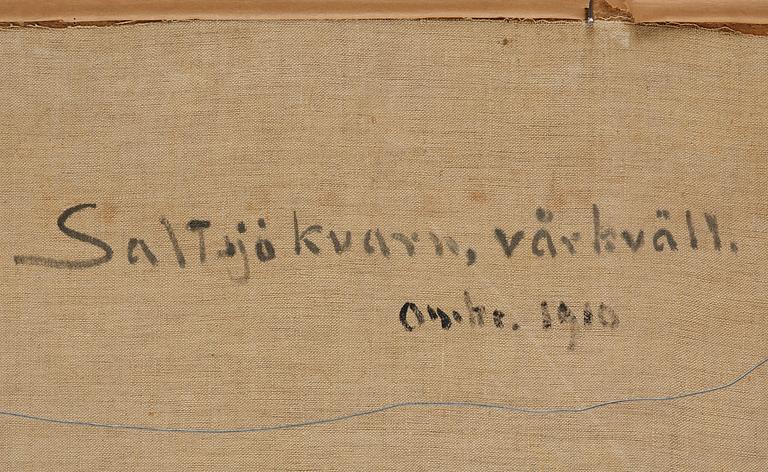 Saltsjökvarn, vårkväll.
Omkr. 1910